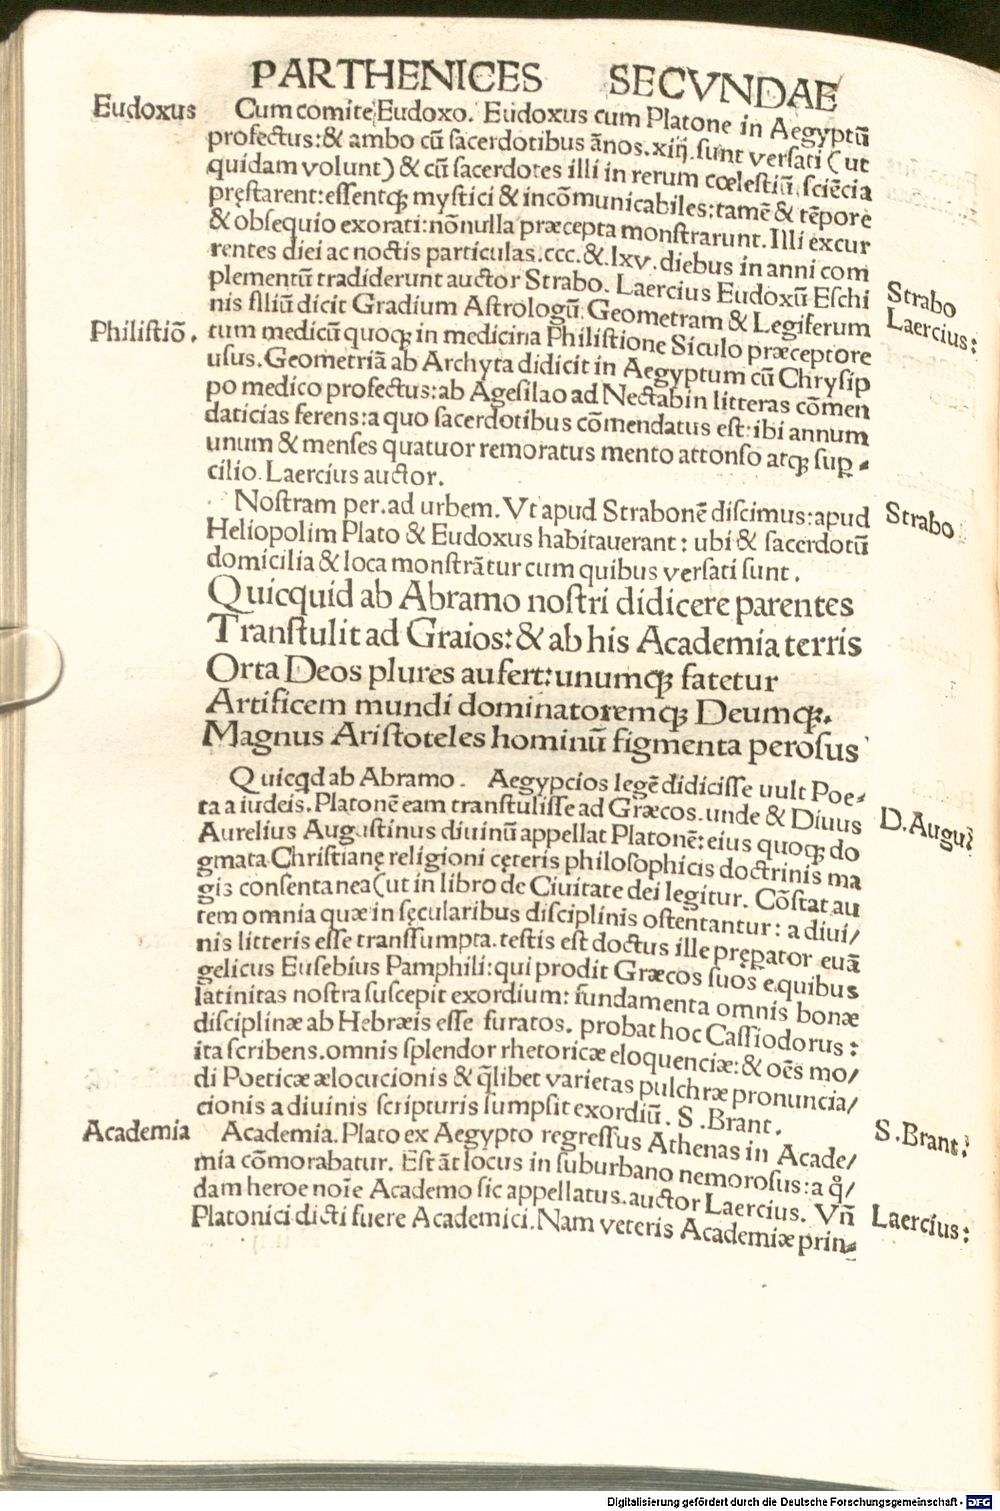 PARTHENICES SECVNDAE
Eudoxus
Cum comite Eudoxo. Eudoxus cum Platone in Aegyptū
profectus:& ambo cū sacerdotibus ānos.xiij.sunt versati (ut
quidam volunt) & cū sacerdotes illi in rerum cœlestiū sciēcia
pręstarent:essentqꝫ mystici & incōmunicabiles:tamē & tēpore
& obsequio exorati:nōnulla præcepta monstrarunt. Illi excur
rentes diei ac noctis particulas.ccc.&.lxv.diebus in anni com
plementū tradiderunt auctor Strabo. Laercius Eudoxū Eschi
Strabo
nis filiū dicit Gradium Astrologū: Geometram & Legiferum
Laercius:
Philistiō.
tum medicū quoqꝫ in medicina Philistione Siculo præceptore
usus. Geometriā ab Archyta didicit in Aegyptum cū Chrysip
po medico profectus:ab Agesilao ad Nectabin litteras cōmen
daticias ferens:a quo sacerdotibus cōmendatus est:ibi annum
unum & menses quatuor remoratus mento attonso atqꝫ suꝑ
cilio. Laercius auctor.
Nostram per.ad urbem. Vt apud Strabonē discimus:apud
Strabo
Heliopolim Plato & Eudoxus habitauerant: ubi & sacerdotū
domicilia & loca monstrātur cum quibus versati sunt.
Quicquid ab Abramo nostri didicere parentes
Transtulit ad Graios:& ab his Academia terris
Orta Deos plures aufert:unumqꝫ fatetur
Artificem mundi dominatoremqꝫ Deumqꝫ.
Magnus Aristoteles hominū figmenta perosus
Quicqd ab Abramo. Aegypcios legē didicisse uult Poe-
ta a iudeis. Platonē eam transtulisse ad Græcos.unde & Diuus
D.Augu
Aurelius Augustinus diuinū appellat Platonē:eius quoqꝫ do
gmata Christianę religioni cęteris philosophicis doctrinis ma
gis consentanea (ut in libro de Ciuitate dei legitur. Cōstat au
tem omnia quæ in sęcularibus disciplinis ostentantur: a diui/
nis litteris esse transsumpta.testis est doctus ille pręꝑator euā
gelicus Eusebius Pamphili:qui prodit Græcos suos e quibus
latinitas nostra suscepit exordium: fundamenta omnis bonæ
disciplinæ ab Hebræis esse furatos. probat hoc Cassiodorus:
ita scribens.omnis splendor rhetoricæ eloquenciæ:& oēs mo/
di Poeticæ ælocucionis & q̄libet varietas pulchræ pronuncia/
cionis a diuinis scripturis sumpsit exordiū. S.Brant.
S.Brant
Academia
Academia. Plato ex Aegypto regressus Athenas in Acade/
mia cōmorabatur. Est āt locus in suburbano nemorosus:a q̊/
dam heroe noīe Academo sic appellatus.auctor Laercius. Vn̄
Laercius:
Platonici dicti fuere Academici. Nam veteris Academiæ prin-
Digitalisierung gefördert durch die Deutsche Forschungsgemeinschaft - DFG